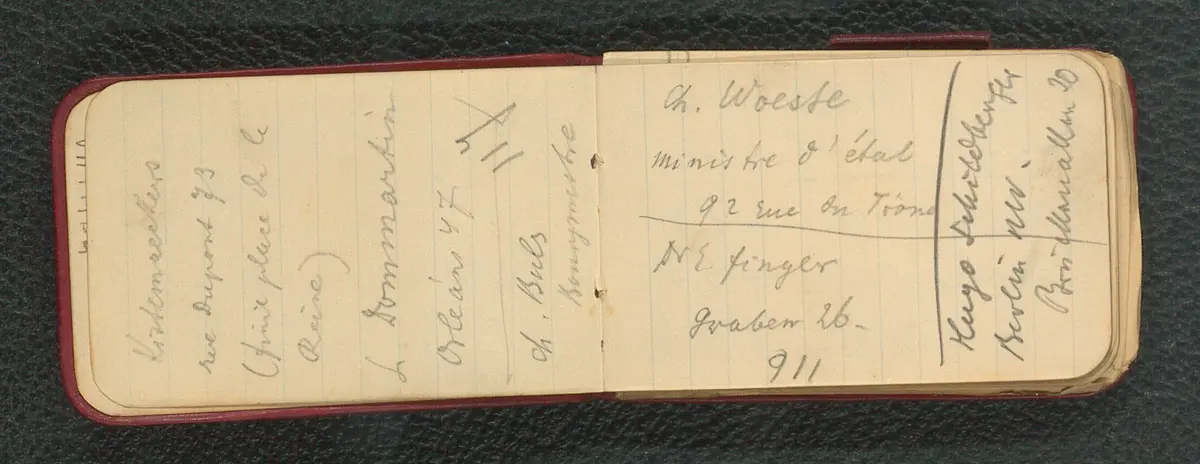 Kistemaeckers
rue Dupont 73
(fini place de la
Reine)
L Dommartin
Orléans 47
Ch. Buls
Bourgmestre
Ch. Woeste
ministre d'état
92 rue du Trône
Dr E finger
Graben 26.
9 11
Hugo Schildberger
Berlin NW.